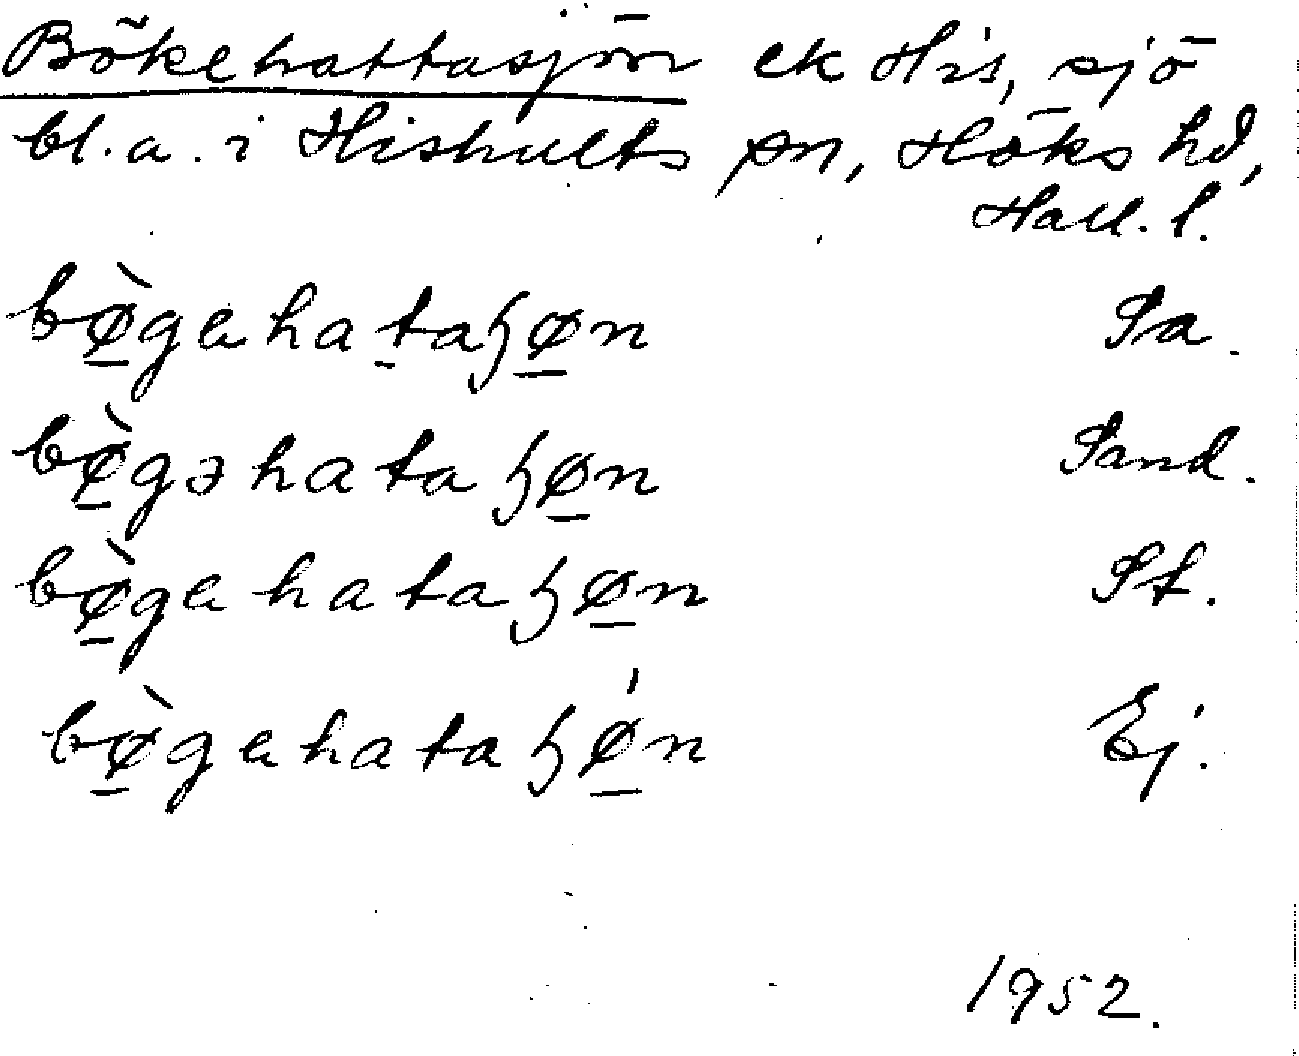 Bökehattasjön ek His, sjö
bl.a. i Hishults sn, Höks hd,
Hall. l.
bø̲̀gehat̲aɧø̲n Sa.
bø̲̀gəhataɧø̲n Sand.
bø̲̀gehataɧø̲n St.
bø̲̀gehataɧǿ̲n Ej.
1952.